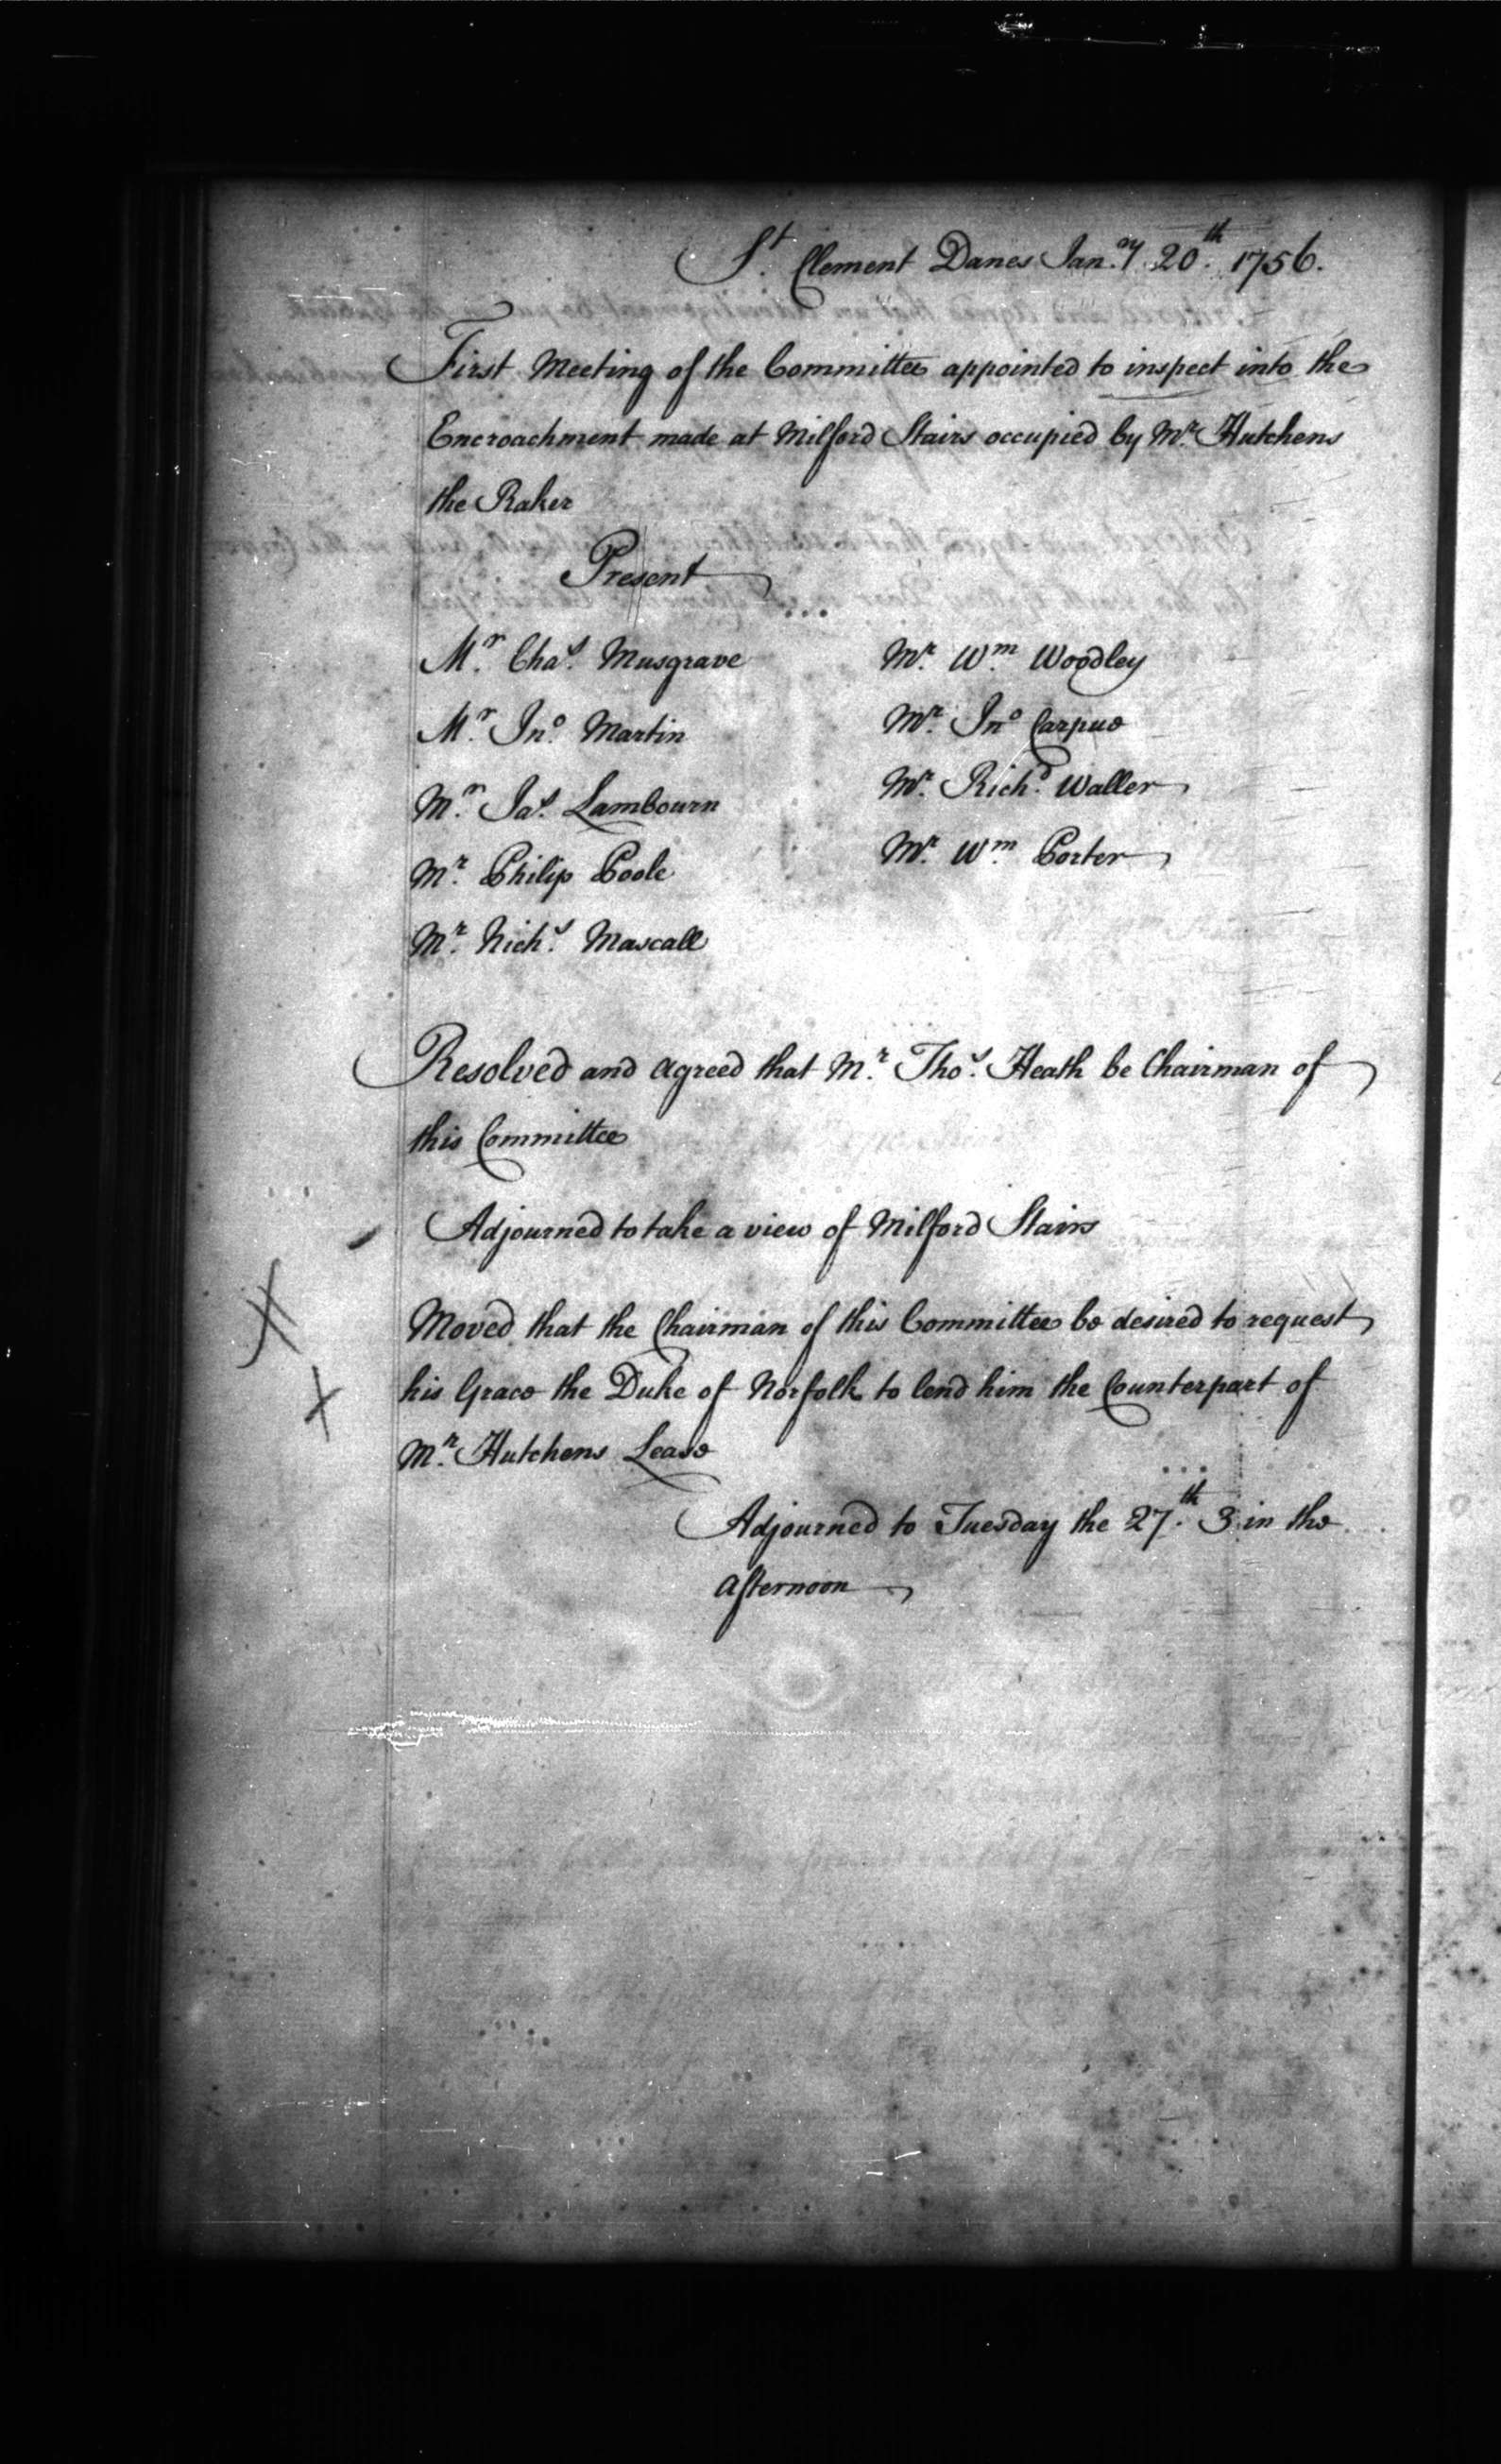 St. Clement Danes Jan.ry 20th. 1756.
First Meeting of the Committee appointed to inspect into the
Encroachment made at Milford Stairs occupied by Mr. Hutchens
the Raker
Present
Mr. Chas. Musgrave
Mr. Jno. Martin
Mr. Jas. Lambourn
Mr. Philip Poole
Mr. Nichs. Mascall
Mr. Wm. Woodley
Mr. Jno. Carpue
Mr. Richd. Waller
Mr. Wm. Porter
Resolved and agreed that Mr. Thos. Heath be Chairman of
this Committee
Adjourned to take a view of Milford Stairs
Moved that the Chairman of this Committee be desired to request
his Grace the Duke of Norfolk to lend him the Counterpart of
Mr. Hutchens Lease
Adjourned to Tuesday the 27th. 3 in the
afternoon